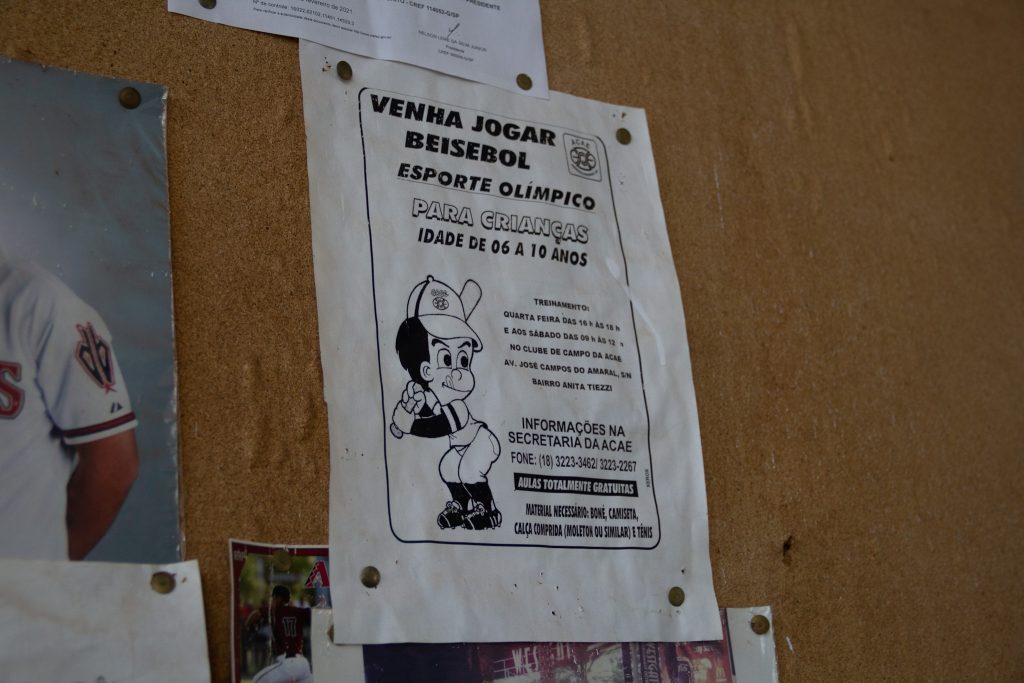 fevereiro de 2021
CREF 114052-G/SP
PRESIDENTE
Presidente
VENHA JOGAR
BEISEBOL
ACAE
ESPORTE OLÍMPICO
PARA CRIANÇAS
IDADE DE 06 A 10 ANOS
TREINAMENTO:
QUARTA FEIRA DAS 16 h ÀS 18 h
E AOS SÁBADO DAS 09 h ÀS 12 h
NO CLUBE DE CAMPO DA ACAE
AV. JOSÉ CAMPOS DO AMARAL, S/N
BAIRRO ANITA TIEZZI
INFORMAÇÕES NA
SECRETARIA DA ACAE
FONE: (18) 3223-3462/ 3223-2267
AULAS TOTALMENTE GRATUITAS
MATERIAL NECESSÁRIO: BONÉ, CAMISETA,
CALÇA COMPRIDA (MOLETON OU SIMILAR) E TÊNIS
db
S
A
17